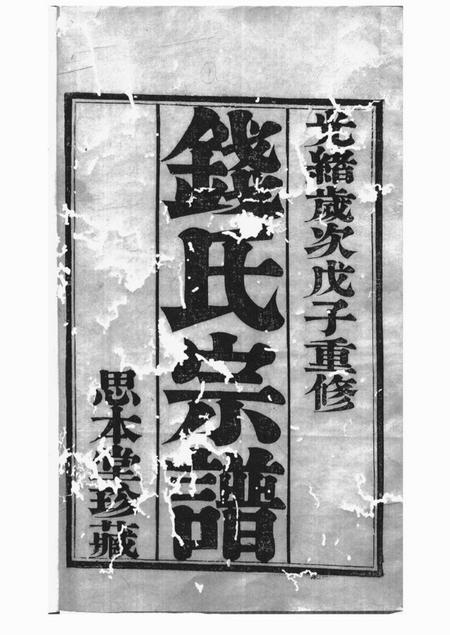 光緒歲次戊子重修
錢氏宗譜
思本堂珍藏